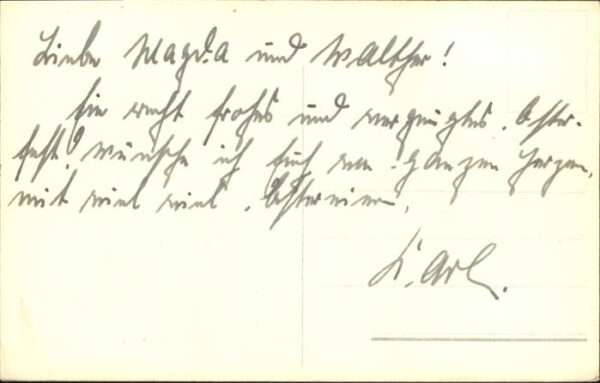 Liebe Magda und Walther!
Ein recht frohes und vergnügtes Oster-
fest! wünsche ich Euch von ganzem Herzen,
mit viel viel Ostereiern,
Karl.